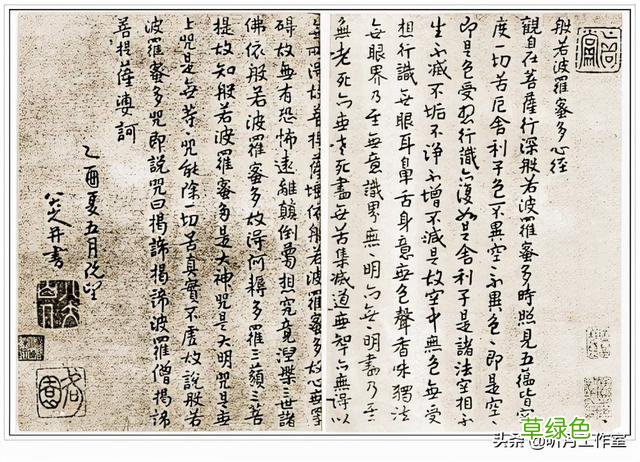 般若波羅蜜多心經
觀自在菩薩行深般若波羅蜜多時照見五蘊皆空
度一切苦厄舍利子色不異空、不異色、即是空、
即是色受想行識亦復如是舍利子是諸法空相不
生不滅不垢不淨不增不減是故空中無色無受
想行識無眼耳鼻舌身意無色聲香味觸法
無眼界乃至無意識界無、明亦無、明盡乃至
無老死亦無老死盡無苦集滅道無智亦無得以
無所得故菩提薩埵依般若波羅蜜多故心無罣
礙故無有恐怖遠離顛倒夢想究竟涅槃三世諸
佛依般若波羅蜜多故得阿耨多羅三藐三菩
提故知般若波羅蜜多是大神咒是大明咒是無
上咒是無等、咒能除一切苦真實不虛故說般若
波羅蜜多咒即說咒曰揭諦揭諦波羅僧揭諦
菩提薩婆訶
乙酉夏五月既望
八大山人書
草绿色
头条@听月工作室